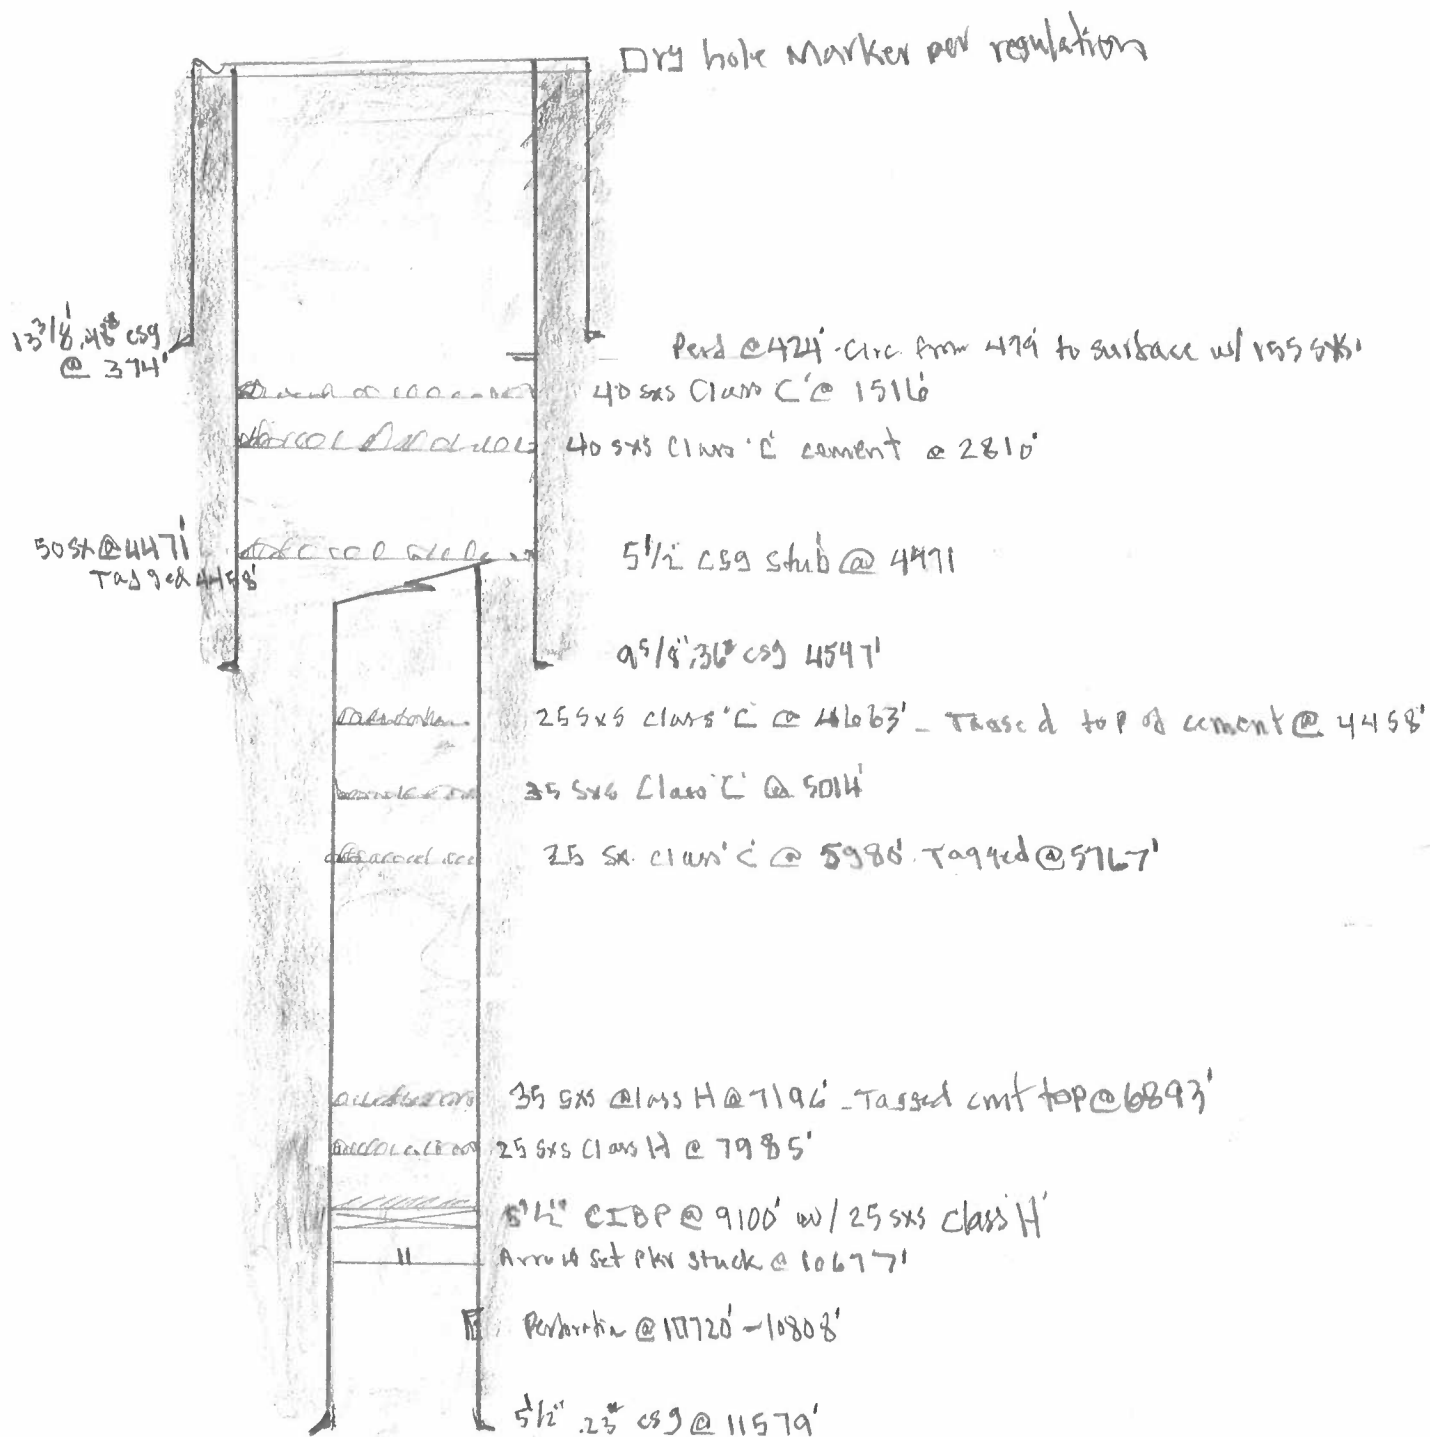 Dry hole Marker per regulation
13 3/8", 48# csg
@ 374'
Perd @ 424' - Circ. from 474' to surface w/ 155 sxs'
40 sxs Class 'C' @ 1516'
40 sxs Class 'C' cement @ 2810'
50 sx @ 4471'
Tagged 4458'
5 1/2 csg stub @ 4471
9 5/8", 36# csg 4547'
25 sxs class 'C' @ 4663' - Tagged top of cement @ 4458'
35 sxs Class 'C' @ 5014'
25 sx. class 'C' @ 5980'. Tagged @ 5767'
35 sxs Class H @ 7196' - Tagged cmt top @ 6893'
25 sxs Class H @ 7985'
5 1/2" CIBP @ 9100' w/ 25 sxs Class H
Arrow Set Pkr stuck @ 10677'
Perforation @ 10720' - 10808'
5 1/2" 23# csg @ 11579'